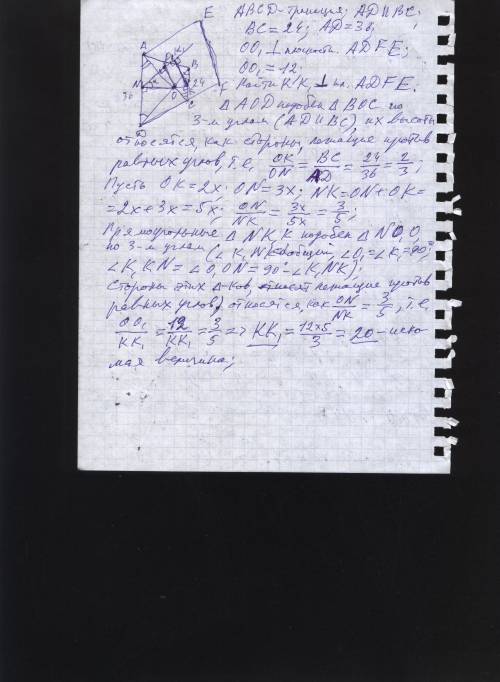 ABCD - трапеция; AD || BC;
BC = 24; AD = 36;
OO₁ ⊥ плоскости ADFE;
OO₁ = 12.
Найти KK₁ ⊥ пл. ADFE.
Δ AOD подобен Δ BOC по
3-м углам (AD || BC), их высоты
относятся, как стороны, лежащие против
равных углов, т.е. OK/ON = BC/AD = 24/36 = 2/3;
Пусть OK = 2x; ON = 3x; NK = ON + OK =
= 2x + 3x = 5x; ON/NK = 3x/5x = 3/5;
Прямоугольные Δ NK₁K подобен Δ NO₁O
по 3-м углам (∠K₁NK общий, ∠O₁ = ∠K₁ = 90°,
∠K₁KN = ∠O₁ON = 90° - ∠K₁NK);
Стороны этих Δ-ков, лежащие против
равных углов, относятся, как ON/NK = 3/5, т.е.
OO₁/KK₁ = 12/KK₁ = 3/5 => KK₁ = 12×5/3 = 20 - иско
мая величина;
A
E
K₁
K
B
N
36
24
O
C
F
D